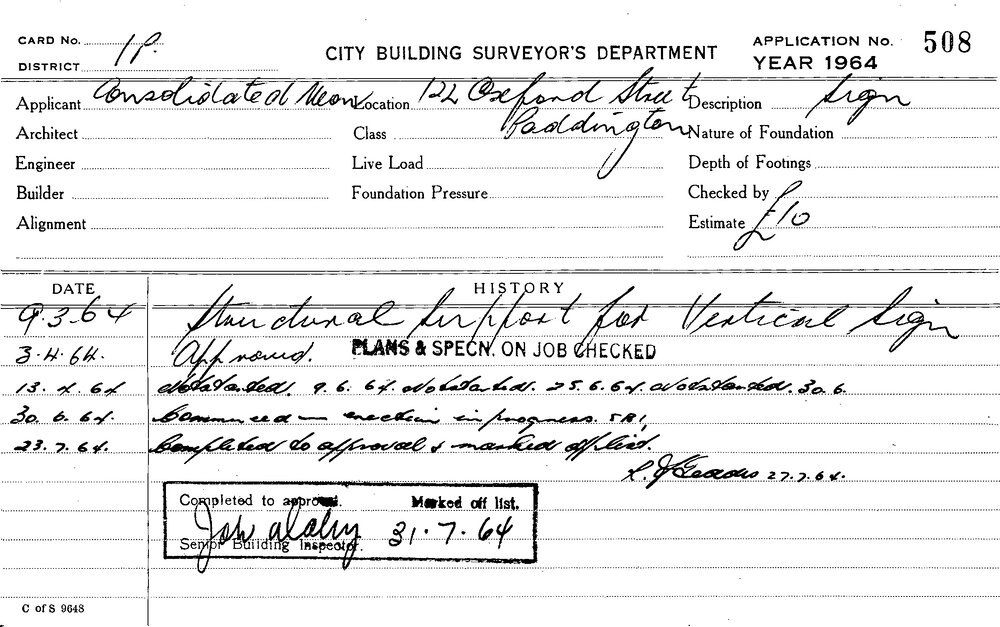 CARD No. 1P.
DISTRICT
CITY BUILDING SURVEYOR'S DEPARTMENT
APPLICATION No. 508
YEAR 1964
Applicant Consolidated Neon Location 122 Oxford Street Description Sign
Paddington
Architect Class Nature of Foundation
Engineer Live Load Depth of Footings
Builder Foundation Pressure Checked by
Alignment Estimate £10
DATE HISTORY
9.3.64 Structural Support for Vertical Sign
3.4.64. Approved. PLANS & SPECN. ON JOB CHECKED
13.4.64 Not started. 9.6.64. Not started. 25.6.64. Not started. 30.6
30.6.64. Commenced — erection in progress.
23.7.64. Completed to approval & marked off list.
27.7.64.
Completed to approval. Marked off list.
31.7.64
Senior Building Inspector.
C of S 9648